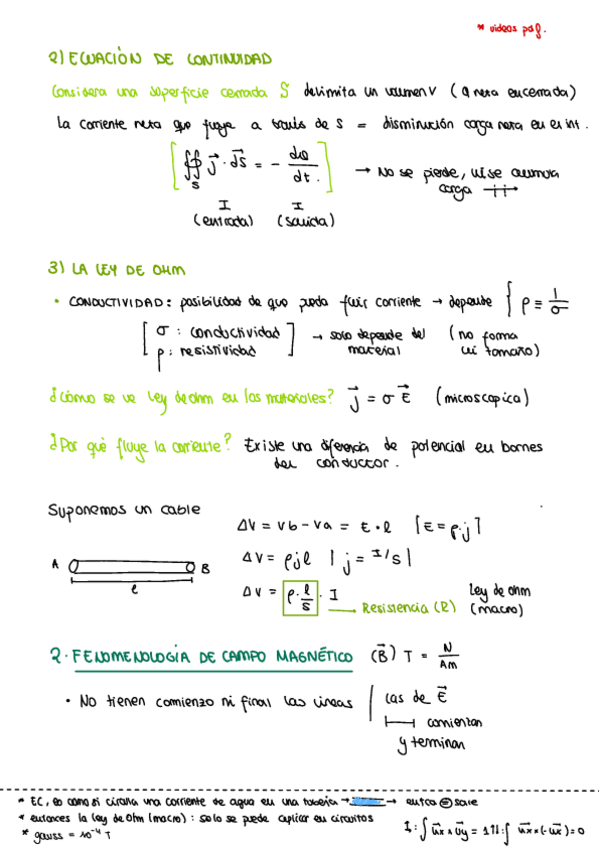 * videos pag.
2) ECUACIÓN DE CONTINUIDAD
Considera una superficie cerrada S delimita un volumen V (q neta encerrada)
La corriente neta que fluye a través de S = disminución carga neta en el int.
[∯_S j⃗ · dS⃗ = - dQ/dt.] → No se pierde, ni se acumula carga
I (entrada) I (salida)
3) LA LEY DE OHM
• CONDUCTIVIDAD: posibilidad de que pueda fluir corriente → depende { ρ = 1/σ
[σ: conductividad → solo depende del (no forma
ρ: resistividad] material ni tamaño)
¿Cómo se ve ley de ohm en los materiales? j⃗ = σ E⃗ (microscopica)
¿Por qué fluye la corriente? Existe una diferencia de potencial en bornes
del conductor.
Suponemos un cable
ΔV = Vb - Va = E · l [E = ρ·j]
A B
l
ΔV = ρjl | j = I/S |
ΔV = ρ · l/S · I Ley de ohm
→ Resistencia (R) (macro)
2. FENOMENOLOGÍA DE CAMPO MAGNÉTICO (B⃗) T = N/Am
• No tienen comienzo ni final las lineas | las de E⃗
comienzan
y terminan
* EC, es como si circula una corriente de agua en una tuberia → → entra = sale
* entonces la ley de Ohm (macro): solo se puede aplicar en circuitos
* gauss = 10⁻⁴ T